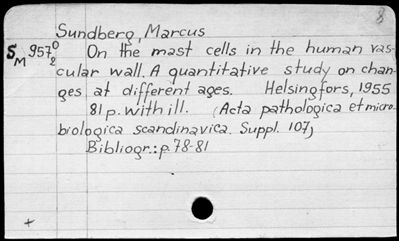 8
Sundberg, Marcus
S M 957 0/2 On the mast cells in the human vas-
cular wall. A quantitative study on chan-
ges at different ages. Helsingfors, 1955
81 p. with ill. (Acta pathologica et micro-
biologica scandinavica. Suppl. 107)
Bibliogr.: p. 78-81
+